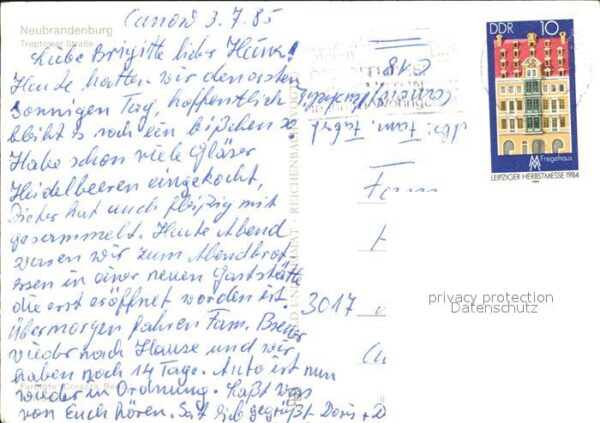 Canow 3.7.85
Neubrandenburg
Treptower Straße
Liebe Brigitte lieber Heinz!
Heute hatten wir den ersten
sonnigen Tag, hoffentlich
bleibt es noch ein bißchen so.
Habe schon viele Gläser
Heidelbeeren eingekocht,
Dieter hat auch fleißig mit
gesammelt. Heute Abend
waren wir zum Abendbrot
essen in einer neuen Gaststätte
die erst eröffnet worden ist
übermorgen fahren Fam.
wieder nach Hause und wir
haben noch 14 Tage. Auto ist nun
wieder in Ordnung. Laßt was
von Euch hören. Seit lieb gegrüßt Doris + D
Abs: Fam.
Fam
3017
DDR 10
Fregehaus
MM
LEIPZIGER HERBSTMESSE 1984
privacy protection
Datenschutz